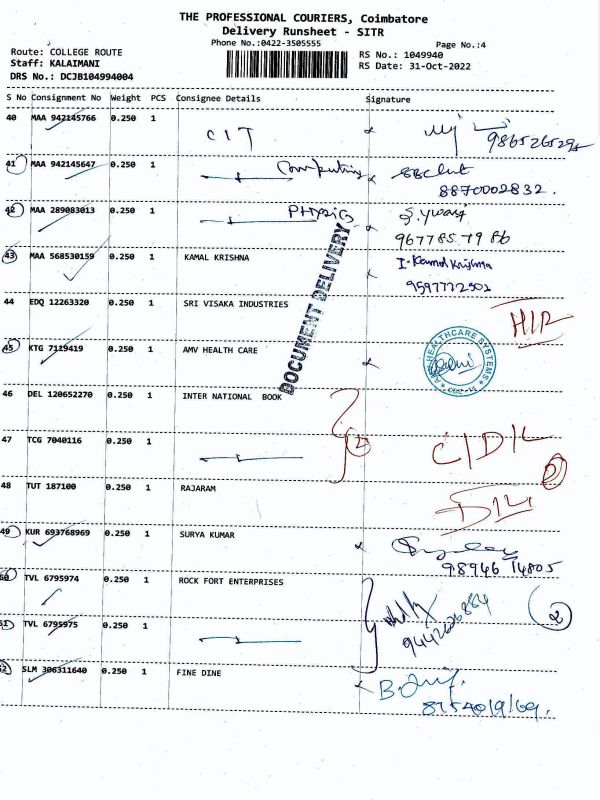 THE PROFESSIONAL COURIERS, Coimbatore
Delivery Runsheet - SITR
Phone No.:0422-3505555
Page No.:4
Route: COLLEGE ROUTE
RS No.: 1049940
Staff: KALAIMANI
RS Date: 31-Oct-2022
DRS No.: DCJB104994004
S No Consignment No Weight PCS Consignee Details Signature
40 MAA 942145766 0.250 1 CIT
41 MAA 942145647 0.250 1 Computing
8870002832.
42 MAA 289083013 0.250 1 PHYSICS
9677857986
43 MAA 568530159 0.250 1 KAMAL KRISHNA I. Kamal Krishna
9597772502
44 EDQ 12263320 0.250 1 SRI VISAKA INDUSTRIES
DOCUMENT DELIVERY
45 KTG 7129419 0.250 1 AMV HEALTH CARE
46 DEL 120652270 0.250 1 INTER NATIONAL BOOK
47 TCG 7040116 0.250 1
C/D/L
2
48 TUT 187100 0.250 1 RAJARAM
49 KUR 693768969 0.250 1 SURYA KUMAR
98946 14805
50 TVL 6795974 0.250 1 ROCK FORT ENTERPRISES
51 TVL 6795975 0.250 1
2
52 SLM 306311640 0.250 1 FINE DINE